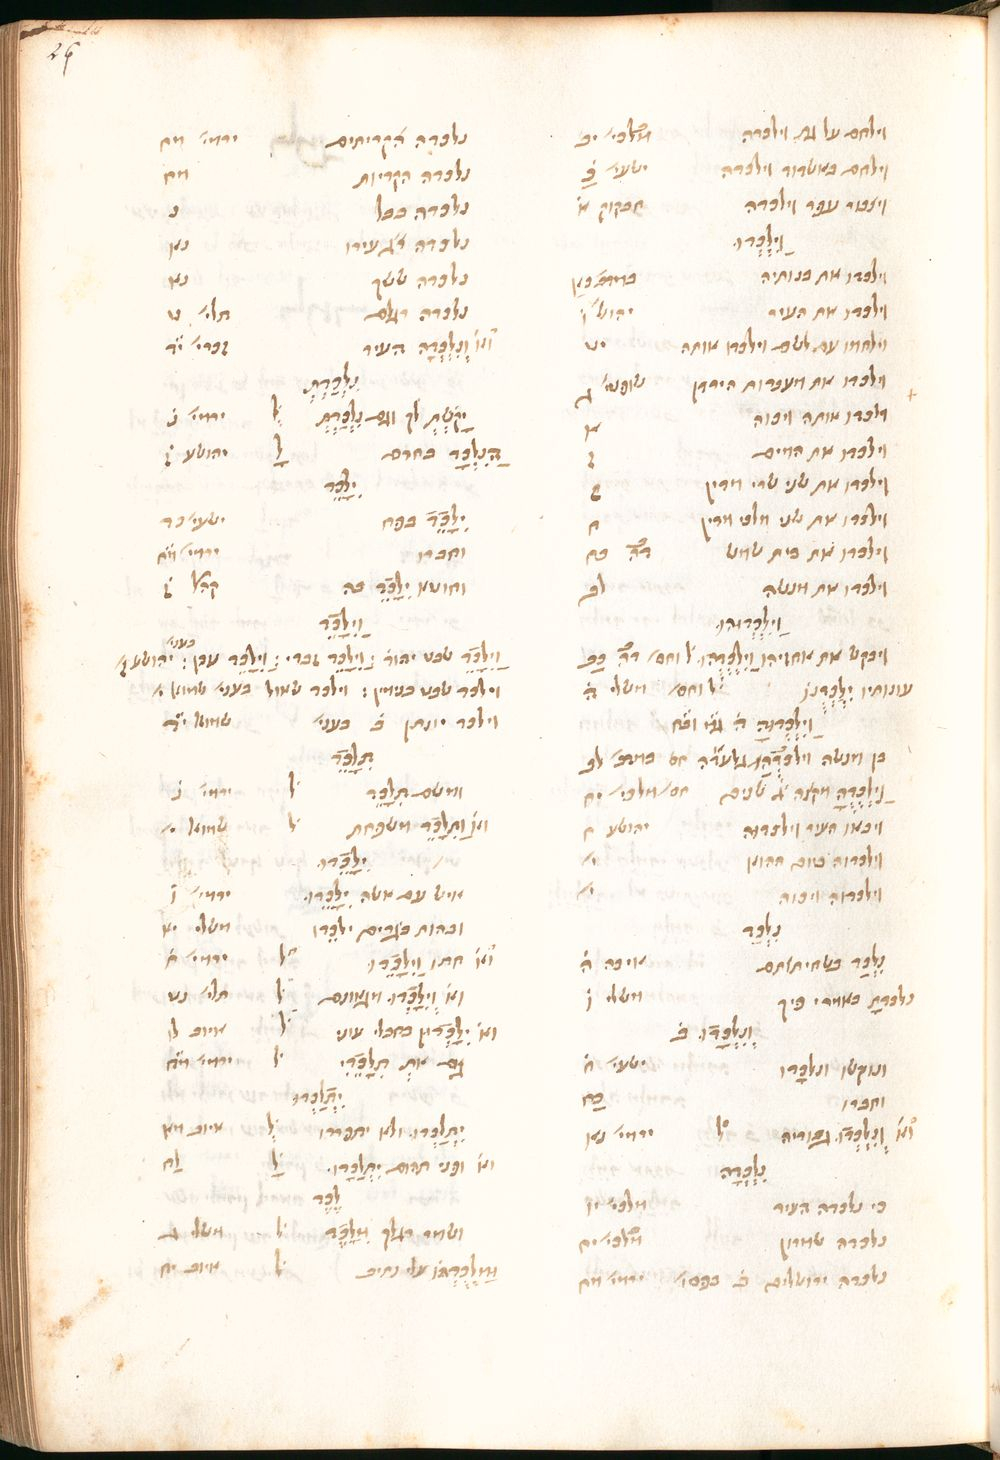 26
וילחם על גת וילכדה מלכי׳ יב
וילחם באשדוד וילכדה ישעי׳ כ
ויצבור עפר וילכדה חבקוק א
וילכדו
וילכדו את בנותיה
וילכדו את העיר יהוש׳
וילחמו עם לשם וילכדו אותה יט
וילכדו את מעברות הירדן שופטי׳ ג
וילכדו אותה ויכוה א
וילכדו את המים ז
וילכדו את שני שרי מדין ז
וילכדו את שני מלכי מדין ח
וילכדו את בית שמש דה׳ כח
וילכדו את מנשה לג
וילכדוהו
ויבקש את אחזיהו וילכדהו ל׳ וחס׳ דה׳ כב
עונותיו ילכדנו ל׳ וחס׳ משלי ה
וילכדה
בן מנשה
וילכדה מקצה ג׳ שנים חס׳ מלכי׳ יח
ויבאו העיר וילכדוה יהושע ח
וילכדוה ביום ההוא י׳
וילכדוה ויכוה י׳
נלכד
נלכד בשחיתותם איכה ד
נלכדת באמרי פיך משלי ו
ונלכדו ב
ונוקשו ונלכדו ישעי׳ ח
וחברו כח
וא׳ ונלכדו גבוריה ל׳ ירמי׳ נא
נלכדה
כי נלכדה העיר מלכי׳ יו
נלכדה שמרון מלכי׳ יח
נלכדה ירושלים ב׳ בפסו׳ ירמי׳ לח
נלכדה הקריתים ירמי׳ מח
נלכדה הקריות מח
נלכדה בבל נ
נלכדה עירו נא
נלכדה ששך נא
נלכדה רגלם תלי׳ ט
וא׳ ונלכדה העיר זכרי׳ יד
נלכדת
יקשת לך וגם נלכדת ל׳ ירמי׳ נ
הנלכד בחרם ל׳ יהושע ז
ילכד
ילכד בפח ישעי׳ כד
וחברו ירמי׳ מח
וחוטא ילכד בה קהל׳ ז
וילכד
וילכד שבט יהודה: וילכד זבדי: וילכד עכן: בעני׳ יהושע ז
וילכד שבט בנימין: וילכד שאול בעני׳ שמוא׳ י׳
וילכד יונתן ב׳ בעני׳ שמוא׳ יד
תלכד
ומשם תלכד ל׳ ירמי׳ נ
וא׳ ותלכד משפחת ל׳ שמוא׳ י׳
ילכדו
איש עם אשה ילכדו ירמי׳ ו
ובהות בוגדים ילכדו משלי יא
וא׳ חתו וילכדו ל׳ ירמי׳ ח
וא׳ וילכדו בגאונם ל׳ תלי׳ נט
וא׳ ילכדון בחבלי עוני ל׳ איוב לו
גם את תלכדי ל׳ ירמי׳ מח
יתלכדו
יתלכדו ולא יתפרדו ל׳ איוב מא
וא׳ ופני תהום יתלכדו ל׳ לח
לכד
ושמר רגלך מלכד ל׳ משלי ג
ומלכדתו עלי נתיב ל׳ איוב יח